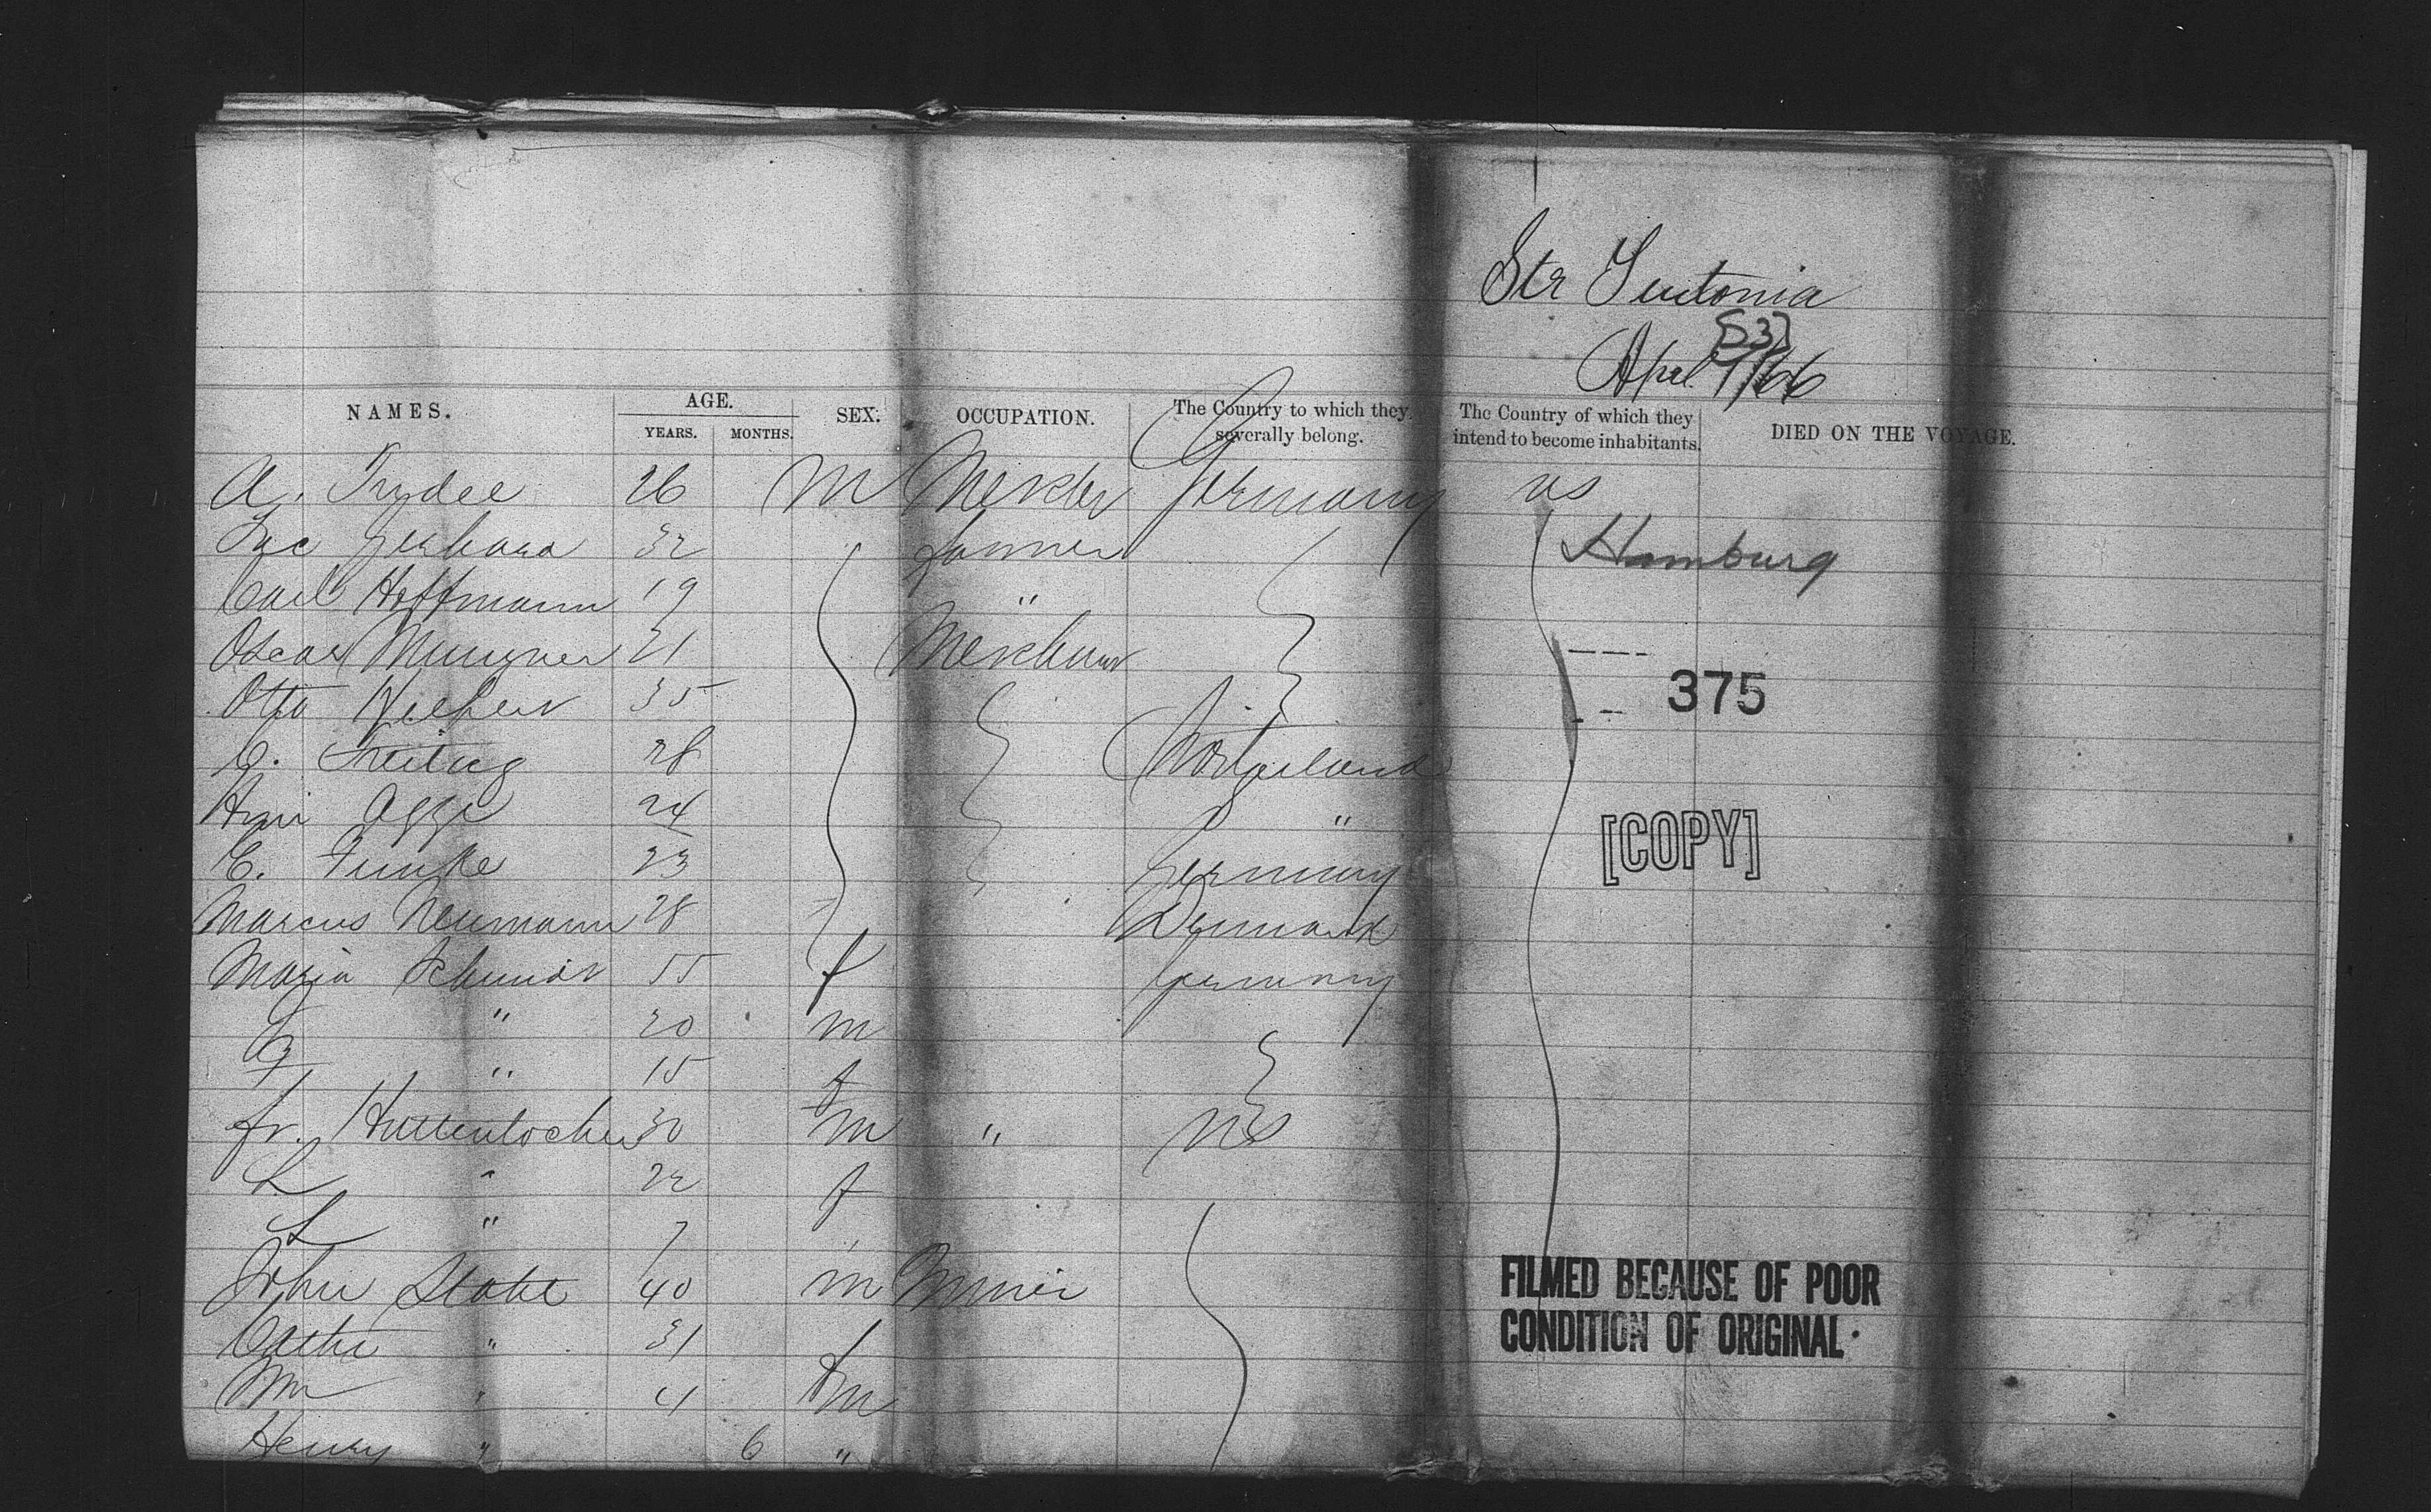 Str Teutonia
[53]
April 9/66
NAMES. AGE. YEARS. MONTHS. SEX. OCCUPATION. The Country to which they severally belong. The Country of which they intend to become inhabitants. DIED ON THE VOYAGE.
A. 26 M Germany us
32 farmer Hamburg
Carl Hoffmann 19 "
Oscar 21
Otto 35
375
C. Freitag 28
24 "
C. Funke 23 Germany
[COPY]
Marcus Neumann 28 Denmark
Maria Schmidt 55 f Germany
" 20 m
" 15 f
fr. Huttenlocher 30 m " US
L " 22 f
L " 7 "
John Stahl 40 m Miner
FILMED BECAUSE OF POOR
CONDITION OF ORIGINAL.
Cathe " 31 f
Wm " 4 m
Henry " 6 "